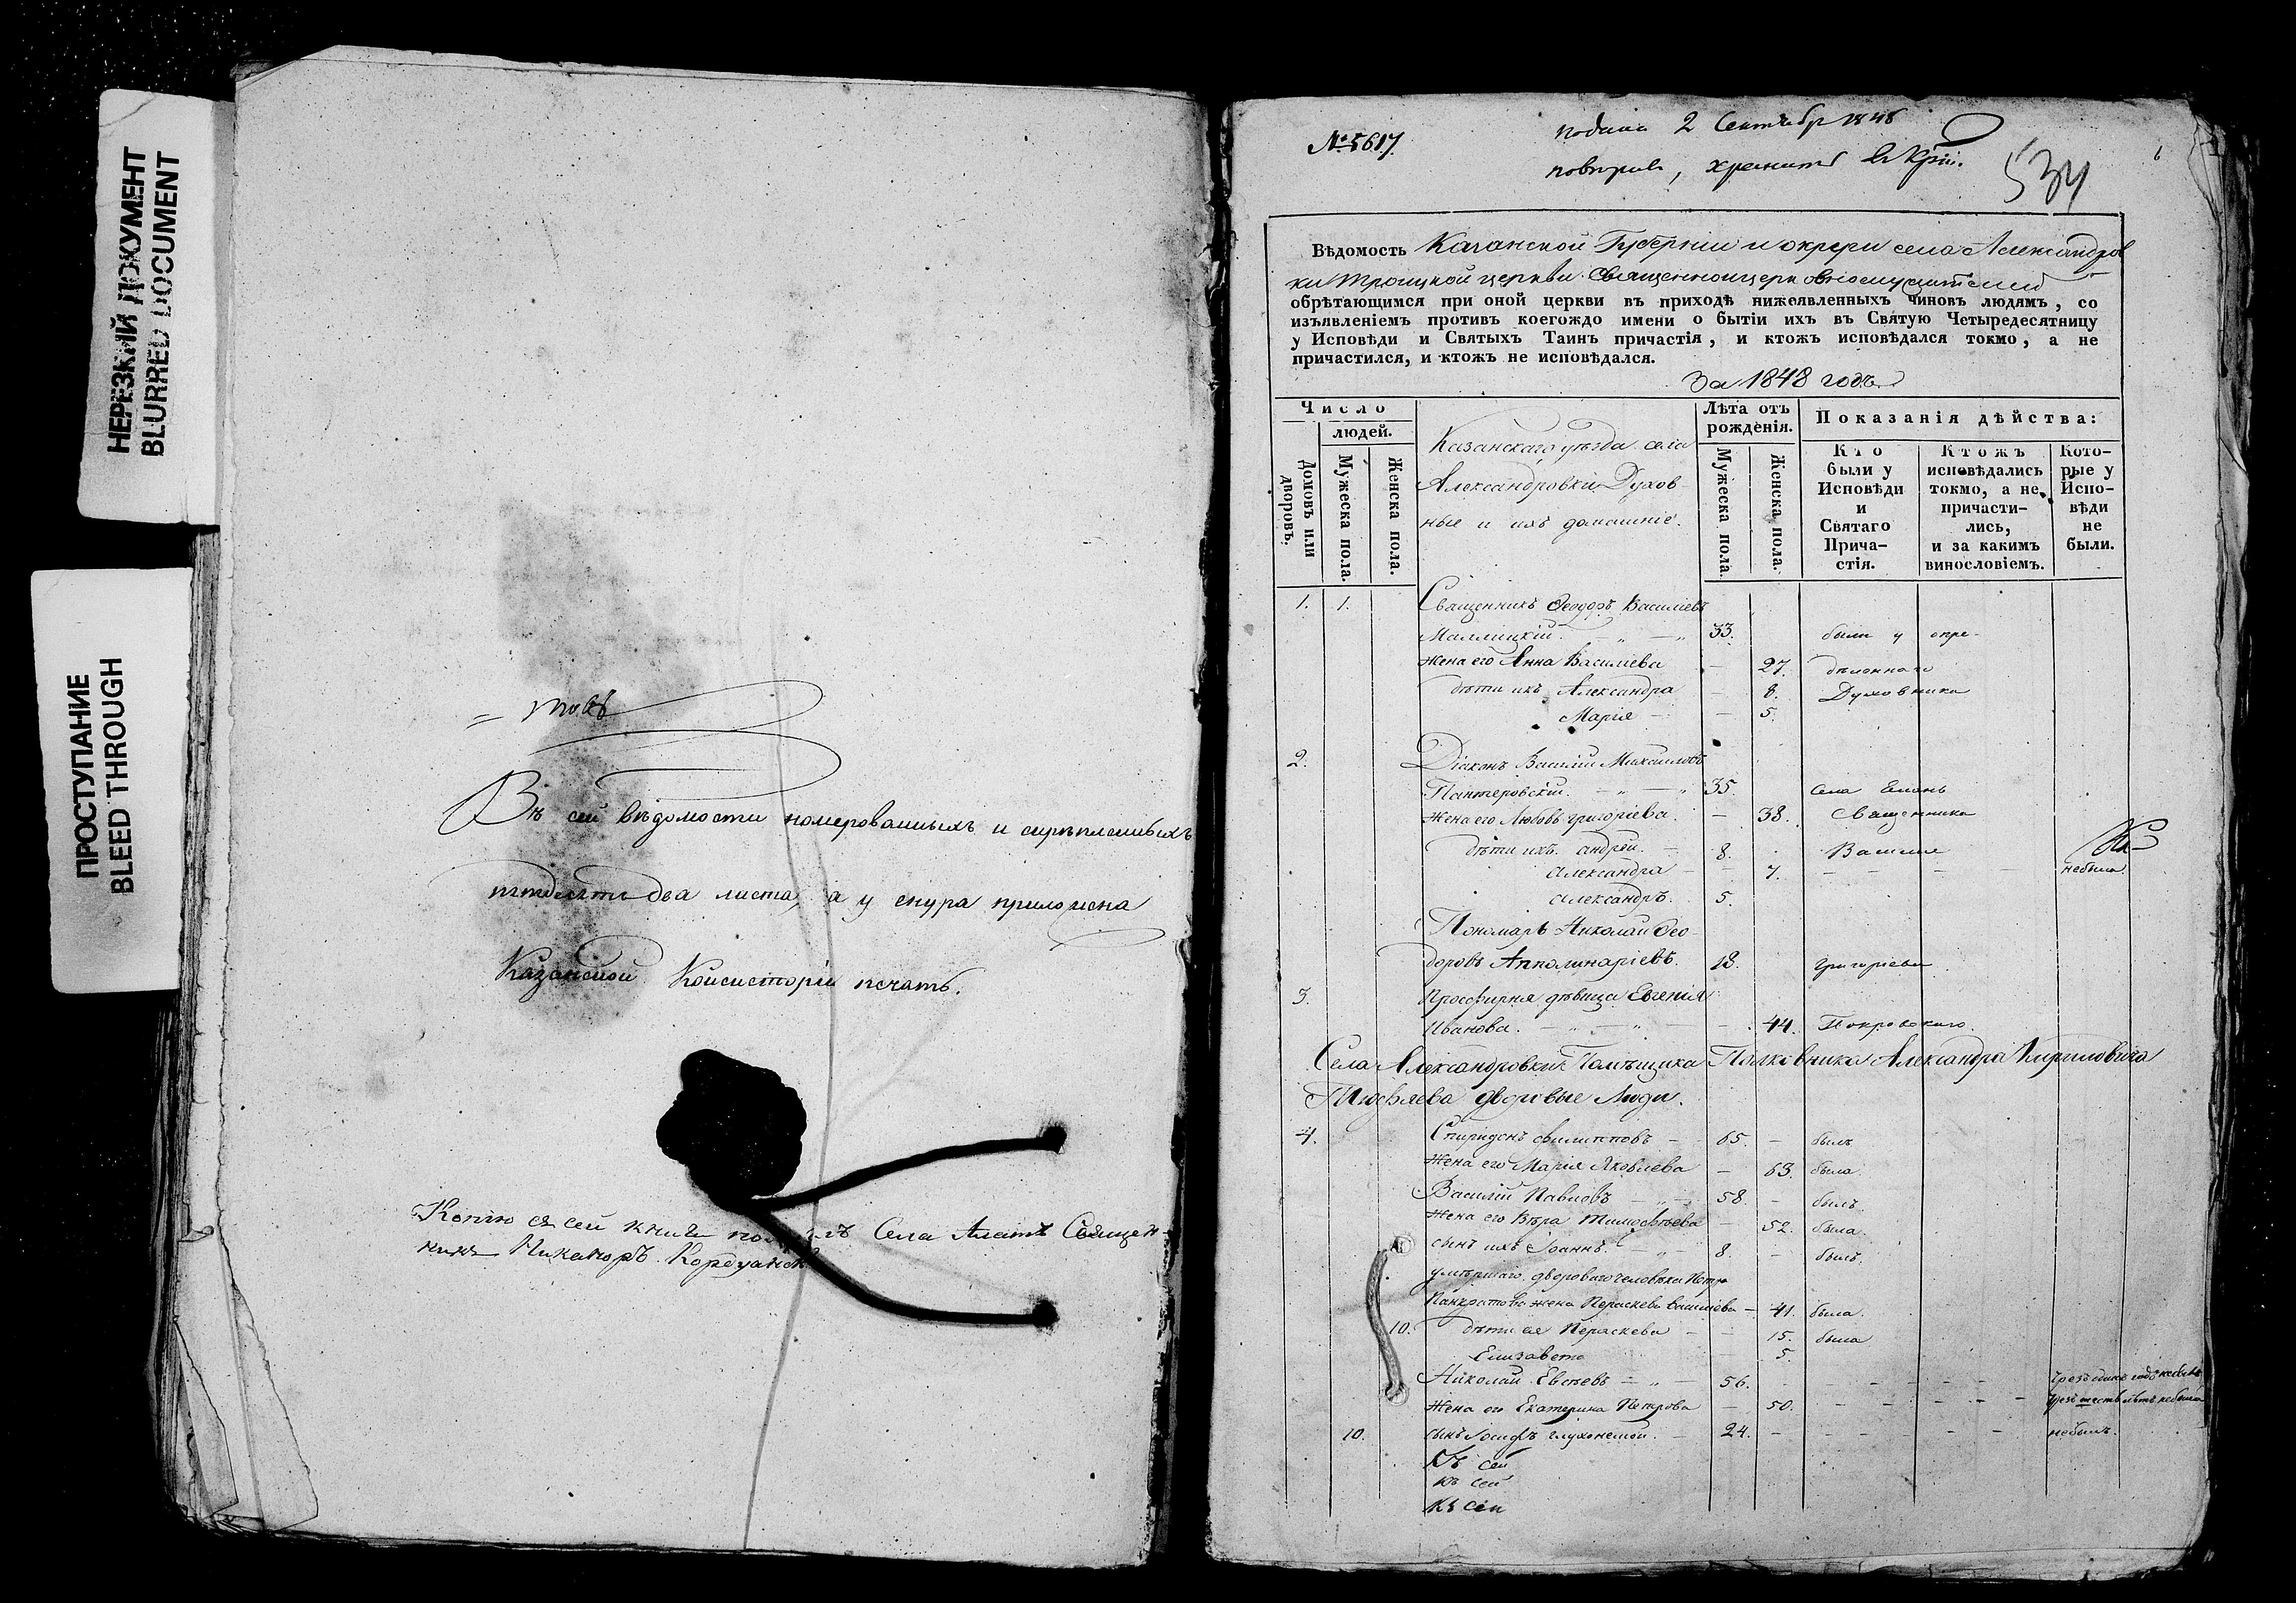 НЕРЕЗКИЙ ДОКУМЕНТ
BLURRED DOCUMENT
ПРОСТУПАНИЕ
BLEED THROUGH
= товъ
Въ сей вѣдомости номерованныхъ и скрѣпленныхъ
пятдесятъ два листа, а у снура приложена
Казанской Консисторіи печать.
Копію съ сей книги Села Алатъ Священ-
никъ Никаноръ
№ 5617.
подана 2 Сентябр 1848
534
6
Вѣдомость Казанской Губерніи и округи села Александров
ки Троицкой церкви Священноцерковнослужителей
обрѣтающимся при оной церкви въ приходѣ нижеявленныхъ чиновъ людямъ, со
изъявленіемъ противъ коегождо имени о бытіи ихъ въ Святую Четыредесятницу
у Исповѣди и Святыхъ Таинъ причастія, и ктожъ исповѣдался токмо, а не
причастился, и ктожъ не исповѣдался.
За 1848 годъ
Число
людей.
Домовъ или дворовъ.
Мужеска пола.
Женска пола.
Казанскаго уѣзда села
Александровки Духов-
ные и ихъ домашніе.
Лѣта отъ рожденія.
Мужеска пола.
Женска пола.
Показанія дѣйства:
Кто были у Исповѣди и Святаго Прича-стія.
Ктожъ исповѣдались токмо, а не причасти-лись, и за какимъ винословіемъ.
Кото-рые у Испо-вѣди не были.
1. 1. Священникъ Ѳеодоръ Василіевъ
33. были у опре-
жена его Анна Василіева — 27. дѣленнаго
дѣти ихъ Александра — 8. Духовника
Марія — — 5.
2. Діаконъ Василій Михаиловъ
Пантеровскій. 35. села
жена его Любовь Григоріева. — 38. Священника
дѣти ихъ. Андрей. — 8. Василія
Александра — — 7. — — — — небыла
Александръ. 5.
Пономарь Николай Ѳео-
доровъ Апполинаріевъ. 18. Григоріева
3. Просфирня дѣвица Евгенія
Иванова. — 44. Покровскаго.
Села Александровки Помѣщика Полковника Александра Кириловича
дворовые Люди.
4. Спиридонъ Филипповъ — 65. — былъ
жена его Марія Яковлева — 63. была.
Василій Павловъ — 58. — былъ.
жена его Вѣра Тимофѣева — 52. была.
сынъ ихъ Іоаннъ. 8. — былъ.
умѣршаго двороваго человѣка Петра
Панкратова жена Пераскева Василіева — 41. была.
10. дѣти ея Пераскева — — 15. была
Елизавета 5.
Николай Евсѣевъ — 56. — — — — чрезъ одинъ годъ небылъ
жена его Екатерина Петрова — 50. — — — — чрезъ шесть лѣтъ небыла
10. сынъ Іосифъ глухонемой. — 24. — — — — небылъ.
Къ сей
къ сей
Къ сей